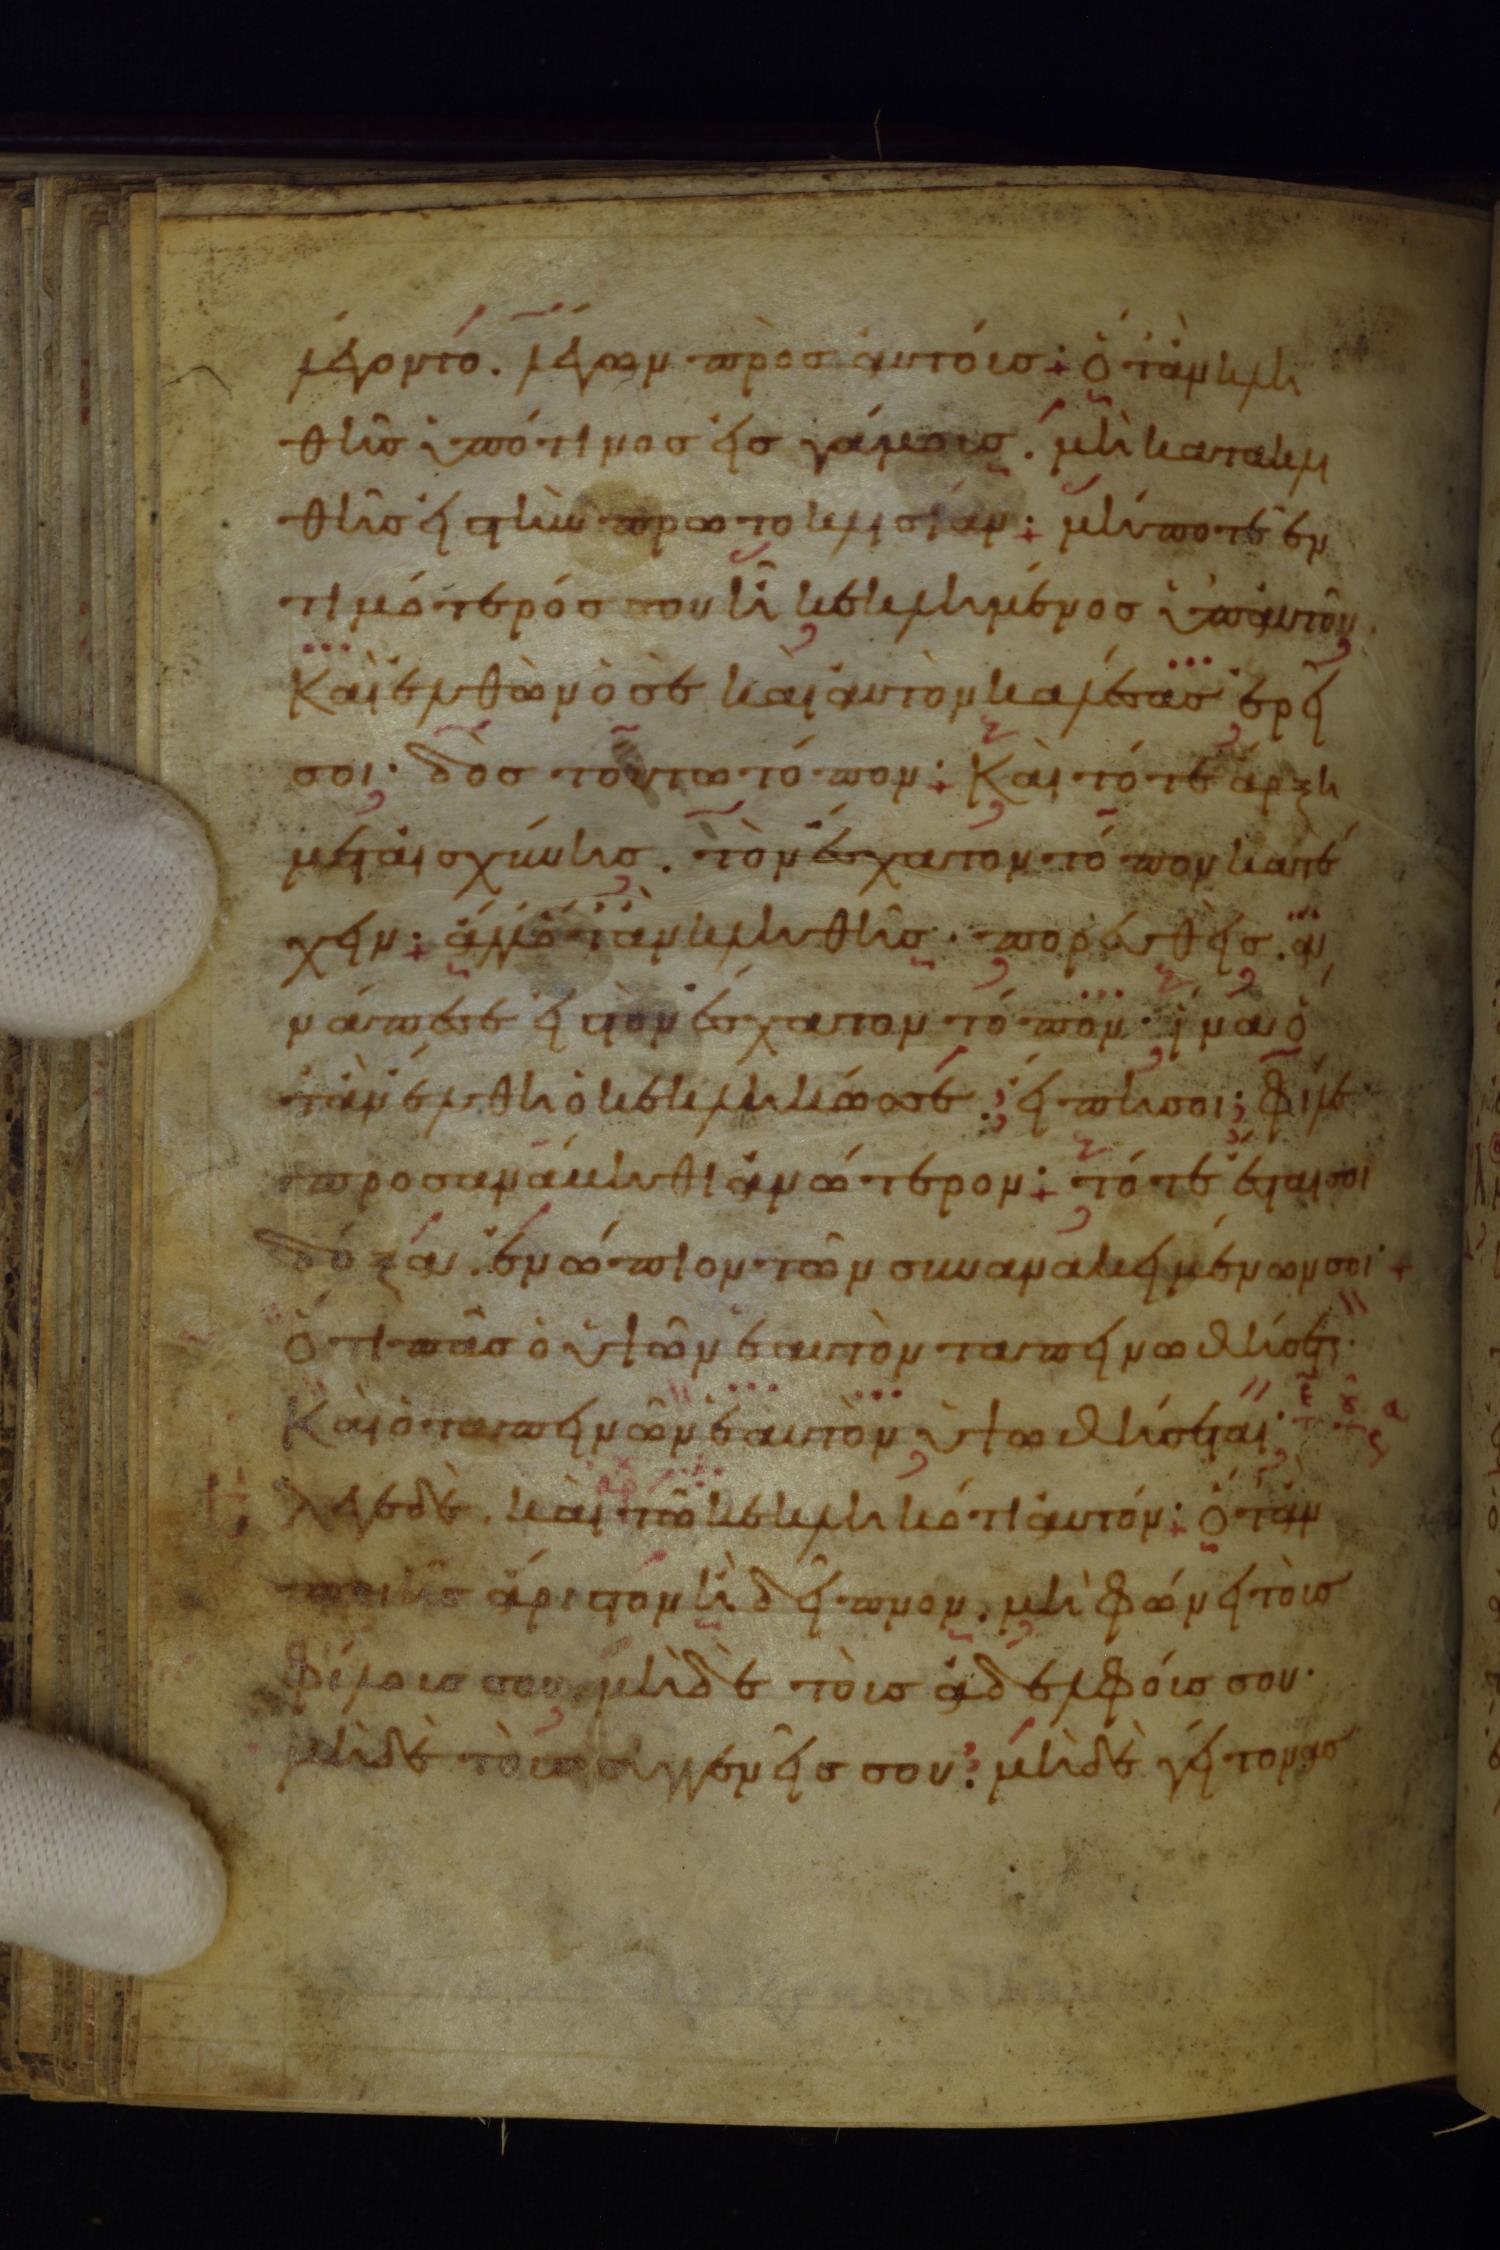 λέγοντο. λέγων πρὸς αὐτοὺς: ὅταν κλη
θῆς ὑπό τινος εἰς γάμους. μὴ κατακλι
θῆς εἰς τὴν πρωτοκλισίαν: μήποτε ἐν
τιμότερός σου ᾖ κεκλημένος ὑπ' αὐτοῦ.
Καὶ ἐλθὼν ὁ σὲ καὶ αὐτὸν καλέσας ἐρεῖ
σοι· δὸς τούτω τόπον: Καὶ τότε ἄρξη
μετ' αἰσχύνης. τὸν ἔσχατον τόπον κατέ
χειν: ἀλλ' ὅταν κληθῆς· πορευθεὶς. ἀ
νάπεσε εἰς τὸν ἔσχατον τόπον· ἵνα ὅ
ταν ἔλθη ὁ κεκληκώς σε. εἴπη σοι; φίλε
προσανάβηθι ἀνώτερον: τότε ἔσται σοι
δόξα. ἐνώπιον τῶν συνανακειμένων σοι·
Ὅτι πᾶς ὁ ὑψῶν ἑαυτὸν ταπεινωθήσεται·
Καὶ ὁ ταπεινῶν ἑαυτὸν ὑψωθήσεται·
λεγε δὲ. καὶ τῶ κεκληκότι αὐτόν: Ὅταν
ποιῆς ἄριστον ἢ δεῖπνον. μὴ φώνει τοὺς
φίλους σου. μὴ δὲ τοὺς ἀδελφούς σου·
μὴ δὲ τοὺς συγγενεῖς σου: μὴ δὲ γείτονας